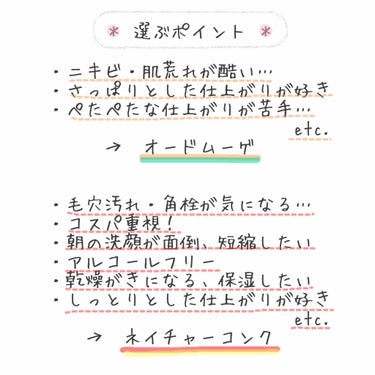 選ぶポイント
・ニキビ・肌荒れが酷い…
・さっぱりとした仕上がりが好き
・ぺたぺたな仕上がりが苦手…
etc.
→ オードムーゲ
・毛穴汚れ・角栓が気になる…
・コスパ重視!
・朝の洗顔が面倒、短縮したい
・アルコールフリー
・乾燥がきになる、保湿したい
・しっとりとした仕上がりが好き
etc.
→ ネイチャーコンク